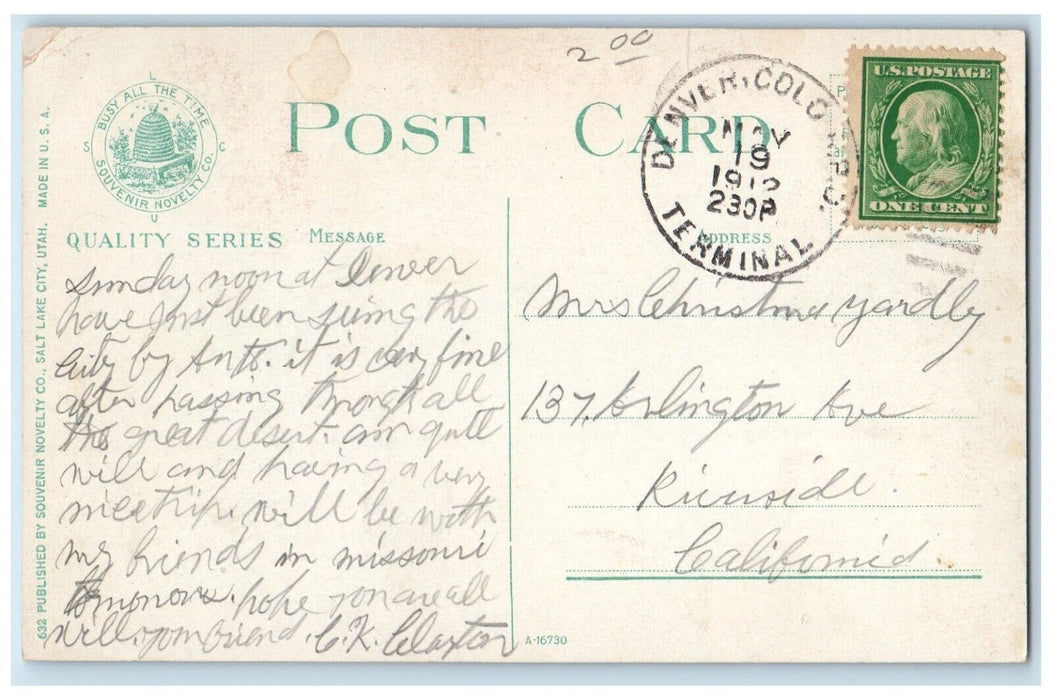 2 00
L
BUSY ALL THE TIME
S C
SOUVENIR NOVELTY CO.
U
POST CARD
DENVER, COLO.
NOV
19
191
230P
TERMINAL
U.S. POSTAGE
ONE CENT
QUALITY SERIES MESSAGE
ADDRESS
Sunday noon at Denver
have just been seeing the
City by Auto. it is very fine
after passing through all
the great desert. am quite
well and having a very
nice trip. will be with
my friends in missouri
tomorrow. hope you are all
well. your friend. C.K. Claxton
Mrs Christina Yardly
137 Arlington Ave
Riverside.
California.
632 PUBLISHED BY SOUVENIR NOVELTY CO., SALT LAKE CITY, UTAH. MADE IN U.S.A.
A-16730